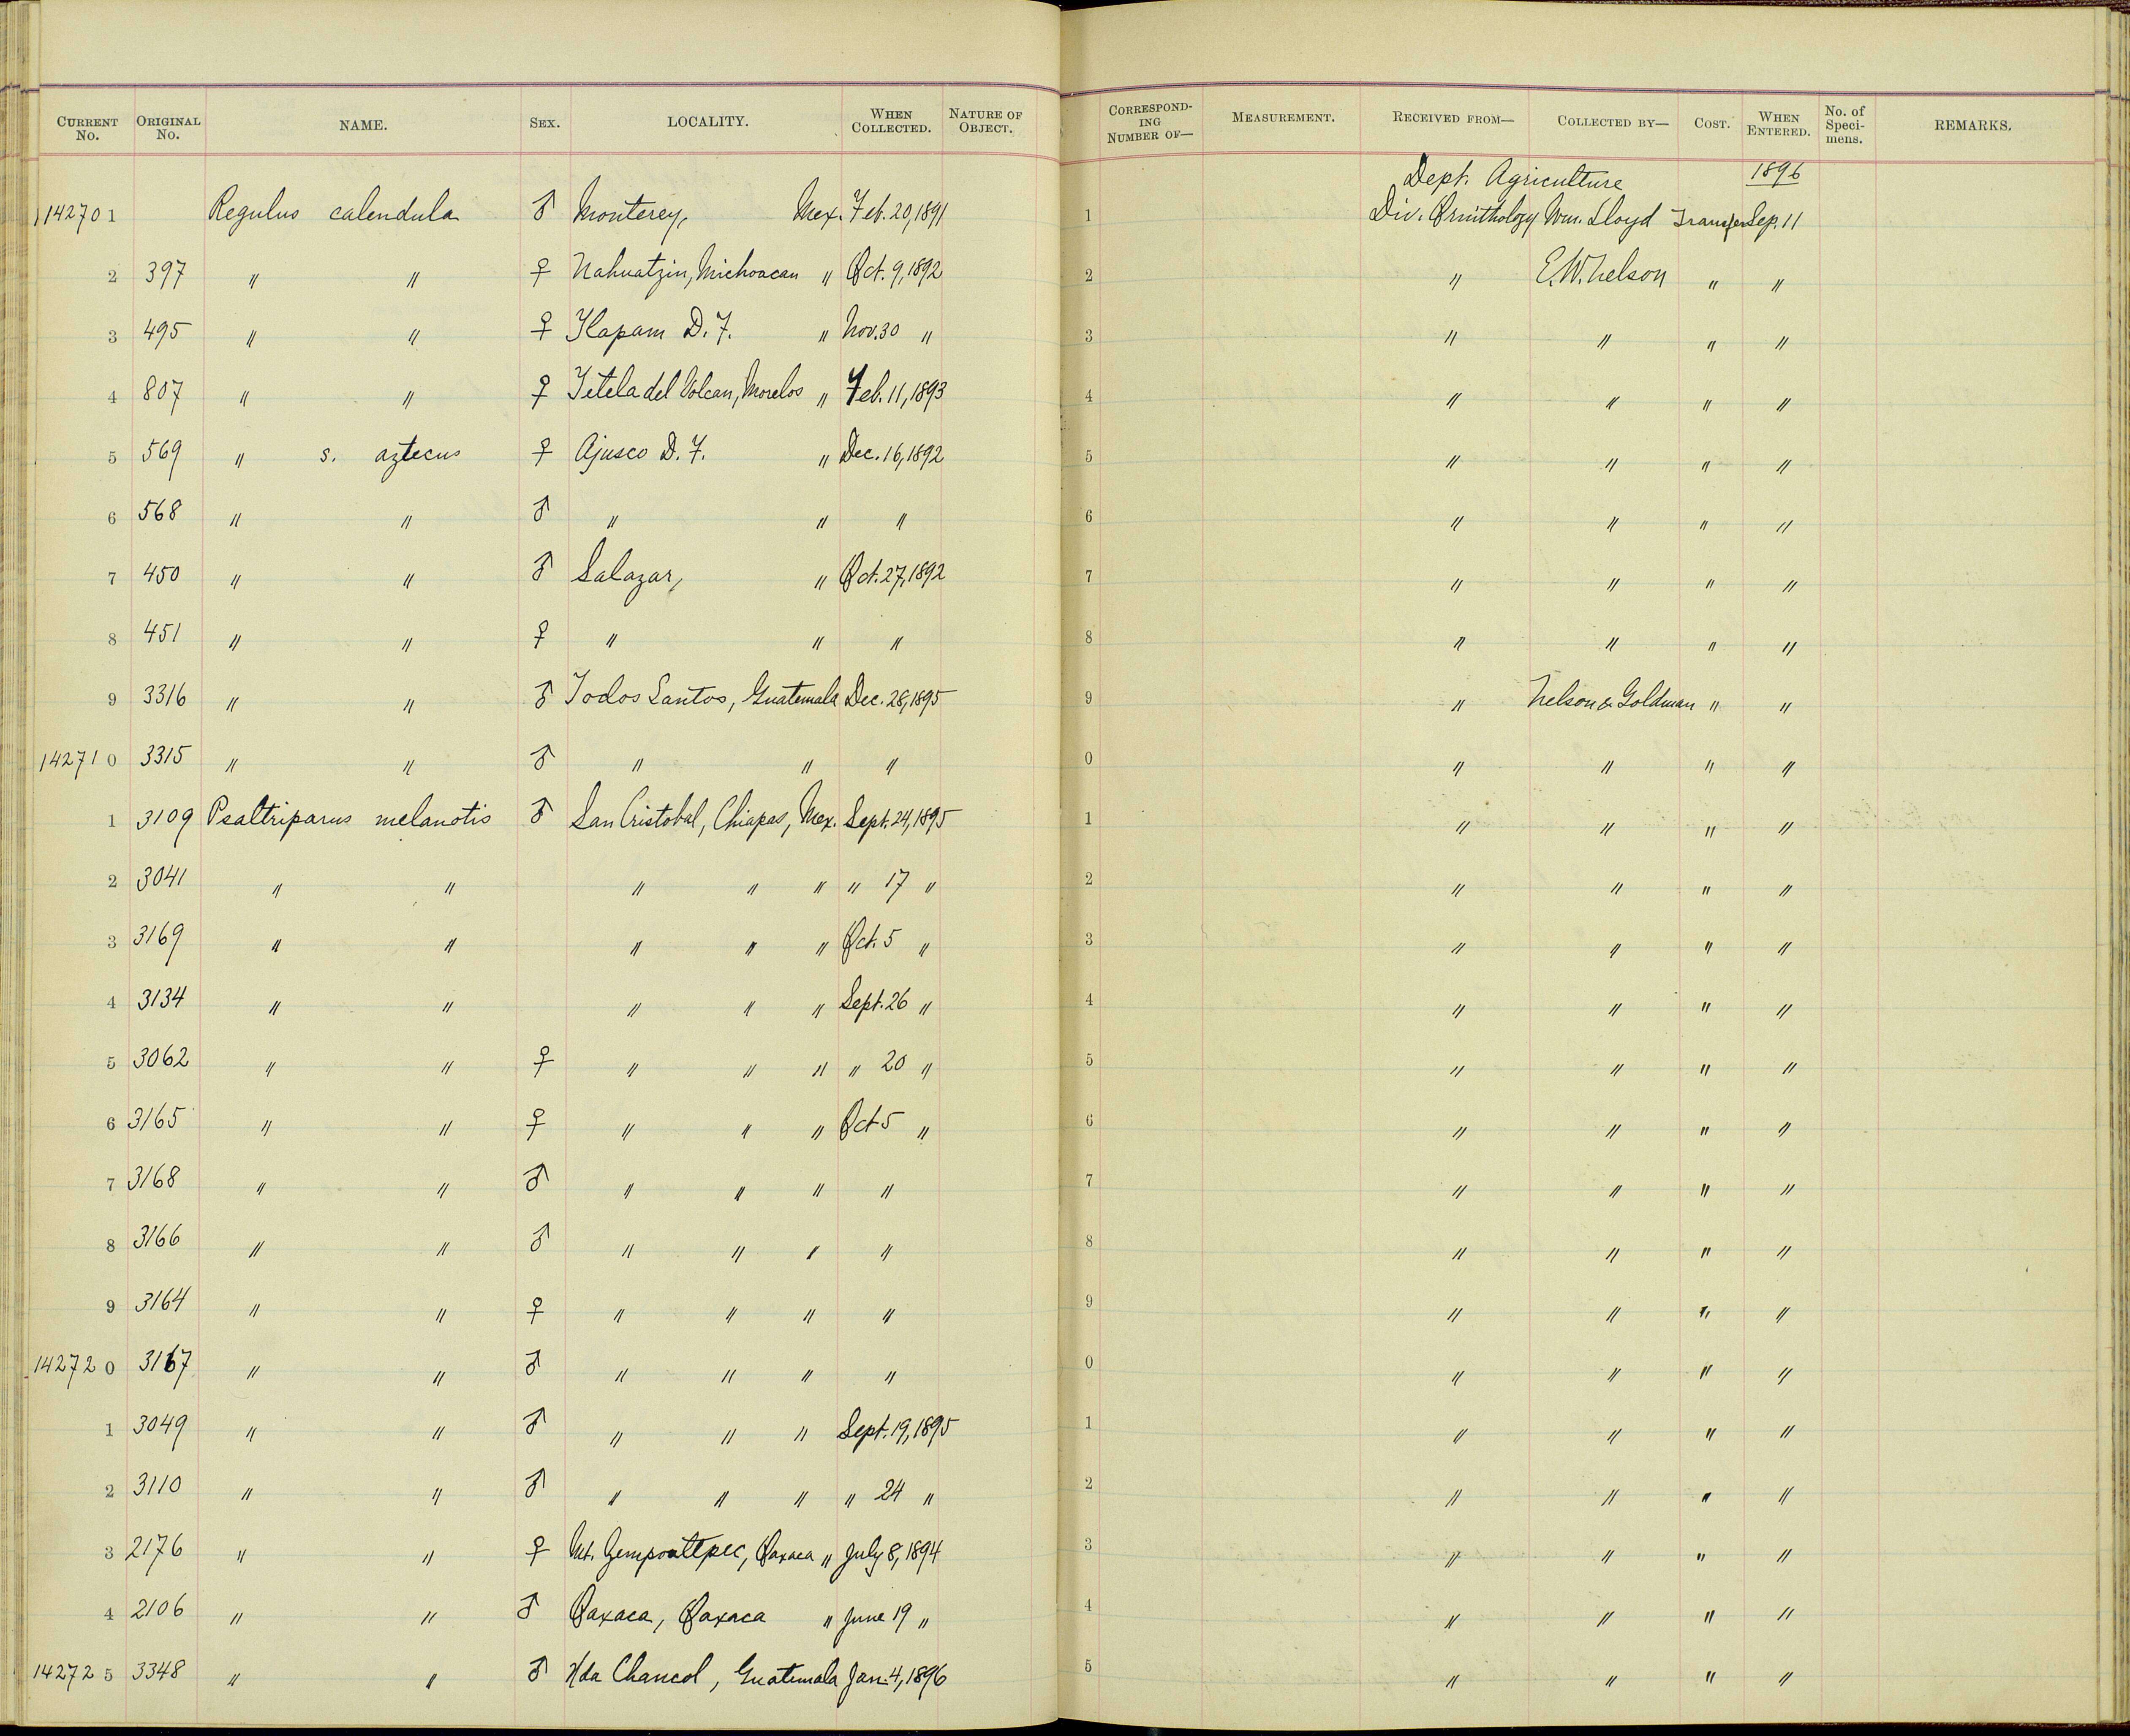 CURRENT No. ORIGINAL No. NAME. SEX. LOCALITY. WHEN COLLECTED. NATURE OF OBJECT. CORRESPONDING NUMBER OF— MEASUREMENT. RECEIVED FROM— COLLECTED BY— COST. WHEN ENTERED. No. of Specimens. REMARKS.
Dept. Agriculture 1896
142701 Regulus calendula ♂ Monterey, Mex. Feb. 20, 1891 1 Div. Ornithology Wm. Lloyd Transfer Sep. 11
2 397 " " ♀ Nahuatzin, Michoacan " Oct. 9, 1892 2 " E.W. Nelson " "
3 495 " " ♀ Tlapam D.F. " Nov. 30 " 3 " " " "
4 807 " " ♀ Tetela del Volcan, Morelos " Feb. 11, 1893 4 " " " "
5 569 " s. aztecus ♀ Ajusco D.F. " Dec. 16, 1892 5 " " " "
6 568 " " ♂ " " " 6 " " " "
7 450 " " ♂ Salazar, " Oct. 27, 1892 7 " " " "
8 451 " " ♀ " " " 8 " " " "
9 3316 " " ♂ Todos Santos, Guatemala Dec. 28, 1895 9 " Nelson & Goldman " "
142710 3315 " " ♂ " " " 0 " " " "
1 3109 Psaltriparus melanotis ♂ San Cristobal, Chiapas, Mex. Sept. 24, 1895 1 " " " "
2 3041 " " " " " " 17 " 2 " " " "
3 3169 " " " " " Oct. 5 " 3 " " " "
4 3134 " " " " " Sept. 26 " 4 " " " "
5 3062 " " ♀ " " " " 20 " 5 " " " "
6 3165 " " ♀ " " " Oct 5 " 6 " " " "
7 3168 " " ♂ " " " " 7 " " " "
8 3166 " " ♂ " " " " 8 " " " "
9 3164 " " ♀ " " " " 9 " " " "
142720 3167 " " ♂ " " " " 0 " " " "
1 3049 " " ♂ " " " Sept. 19, 1895 1 " " " "
2 3110 " " ♂ " " " " 24 " 2 " " " "
3 2176 " " ♀ Mt. Zempoaltepec, Oaxaca " July 8, 1894 3 " " " "
4 2106 " " ♂ Oaxaca, Oaxaca " June 19 " 4 " " " "
142725 3348 " " ♂ Hda Chancol, Guatemala Jan. 4, 1896 5 " " " "